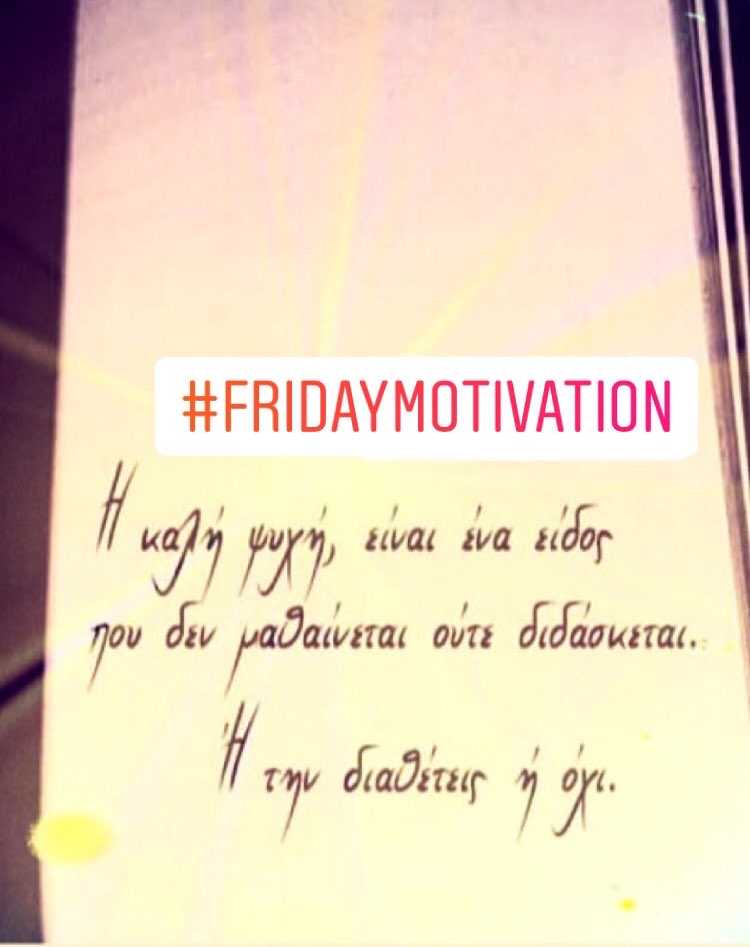 #FRIDAYMOTIVATION
Η καλή ψυχή, είναι ένα είδος
που δεν μαθαίνεται ούτε διδάσκεται.
Ή την διαθέτεις ή όχι.